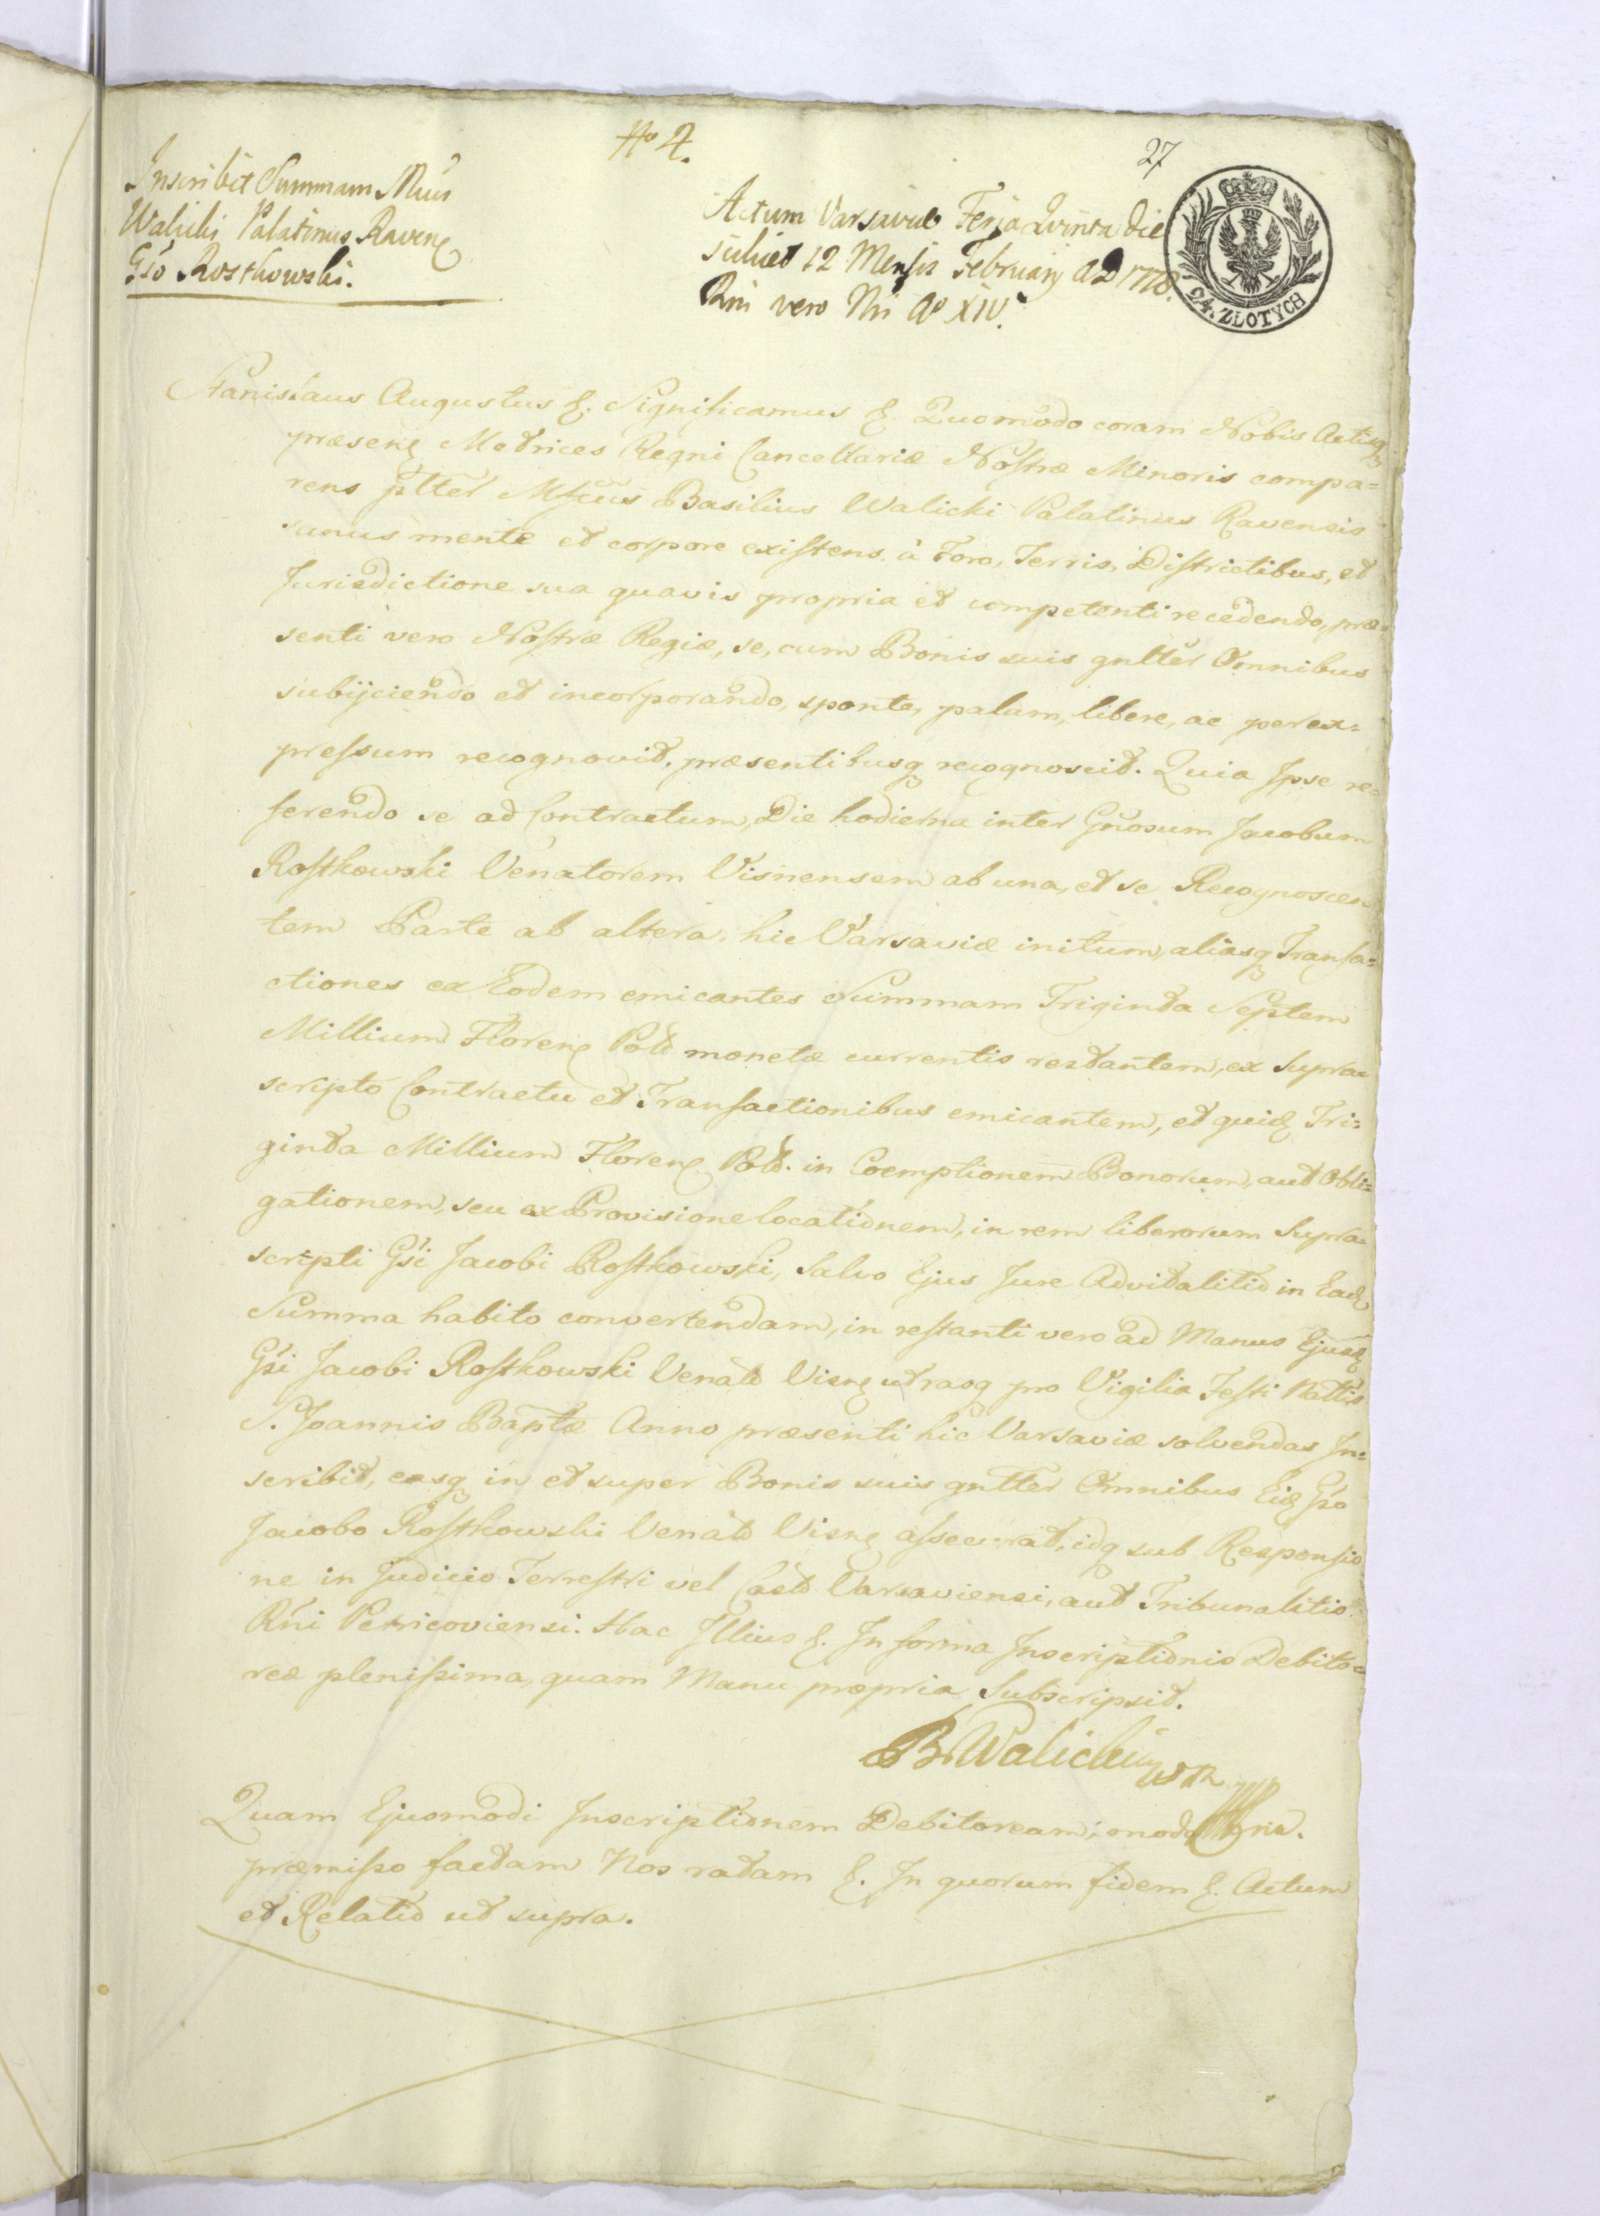 No 4.
27
Inscribit Summam Mcus
Walicki Palatinus Ravenẽ
Gso Rostkowski.
Actum Varsaviæ Feria Quinta Die
scilicet 12 Mensis Februarij AD 1778.
Rni vero Nri Ao XIV.
24. ZŁOTYCH
Stanislaus Augustus &. Significamus &. Quomodo coram Nobis Actisq
præsenẽ Metrices Regni Cancellariæ Nostræ Minoris compa=
rens pltter Mfcus Basilius Walicki Palatinus Ravensis
sanus mente et corpore existens à Foro, Terris, Districtibus, et
Jurisdictione sua quavis propria et competenti recedendo, præ=
senti vero Nostræ Regiæ, se, cum Bonis suis gnltter Omnibus
subijciendo et incorporando, sponte, palam, libere, ac per ex=
pressum recognovit, præsentibusq recognoscit. Quia Ipse re=
ferendo se ad Contractum, Die hodierna inter Gnosum Jacobum
Rostkowski Venatorem Visnensem ab una, et se Recognoscen
tem Parte ab altera, hic Varsaviæ initum, aliasq Transa=
ctiones ex Eodem emicantes Summam Triginta Septem
Millium Florenẽ Pold monetæ currentis restantem, ex Supra=
scripto Contractu et Transactionibus emicantem, et quidẽ Tri=
ginta Millium Florenẽ Pold. in Coemptionem Bonorum, aut Obli=
gationem, seu ex Provisione locationem, in rem liberorum Supra=
scripti Gsi Jacobi Rostkowski, Salvo Ejus Jure Advitalitio in Eadẽ
Summa habito convertendam, in restanti vero ad Manus Ejusdẽ
Gsi Jacobi Rostkowski Venatd Visnẽ utrasq pro Vigilia Festi Nattis
S. Joannis Baptæ Anno præsenti hic Varsaviæ solvendas In=
scribit, easq in et super Bonis suis gnltter Omnibus Eidẽ Gso
Jacobo Rostkowski Venatd Visnẽ assecurat, idq sub Responsio
ne in Judicio Terrestri vel Castd Varsaviensi, aut Tribunalitio
Rni Petricoviensi. Hac Illius &. In forma Inscriptionis Debito=
reæ plenissima, quam Manu propria Subscripsit.
B Walicki WR
Quam Ejusmodi Inscriptionem Debitoream, modo
præmisso factam Nos ratam &. In quorum fidem &. Actum
et Relatio ut supra.